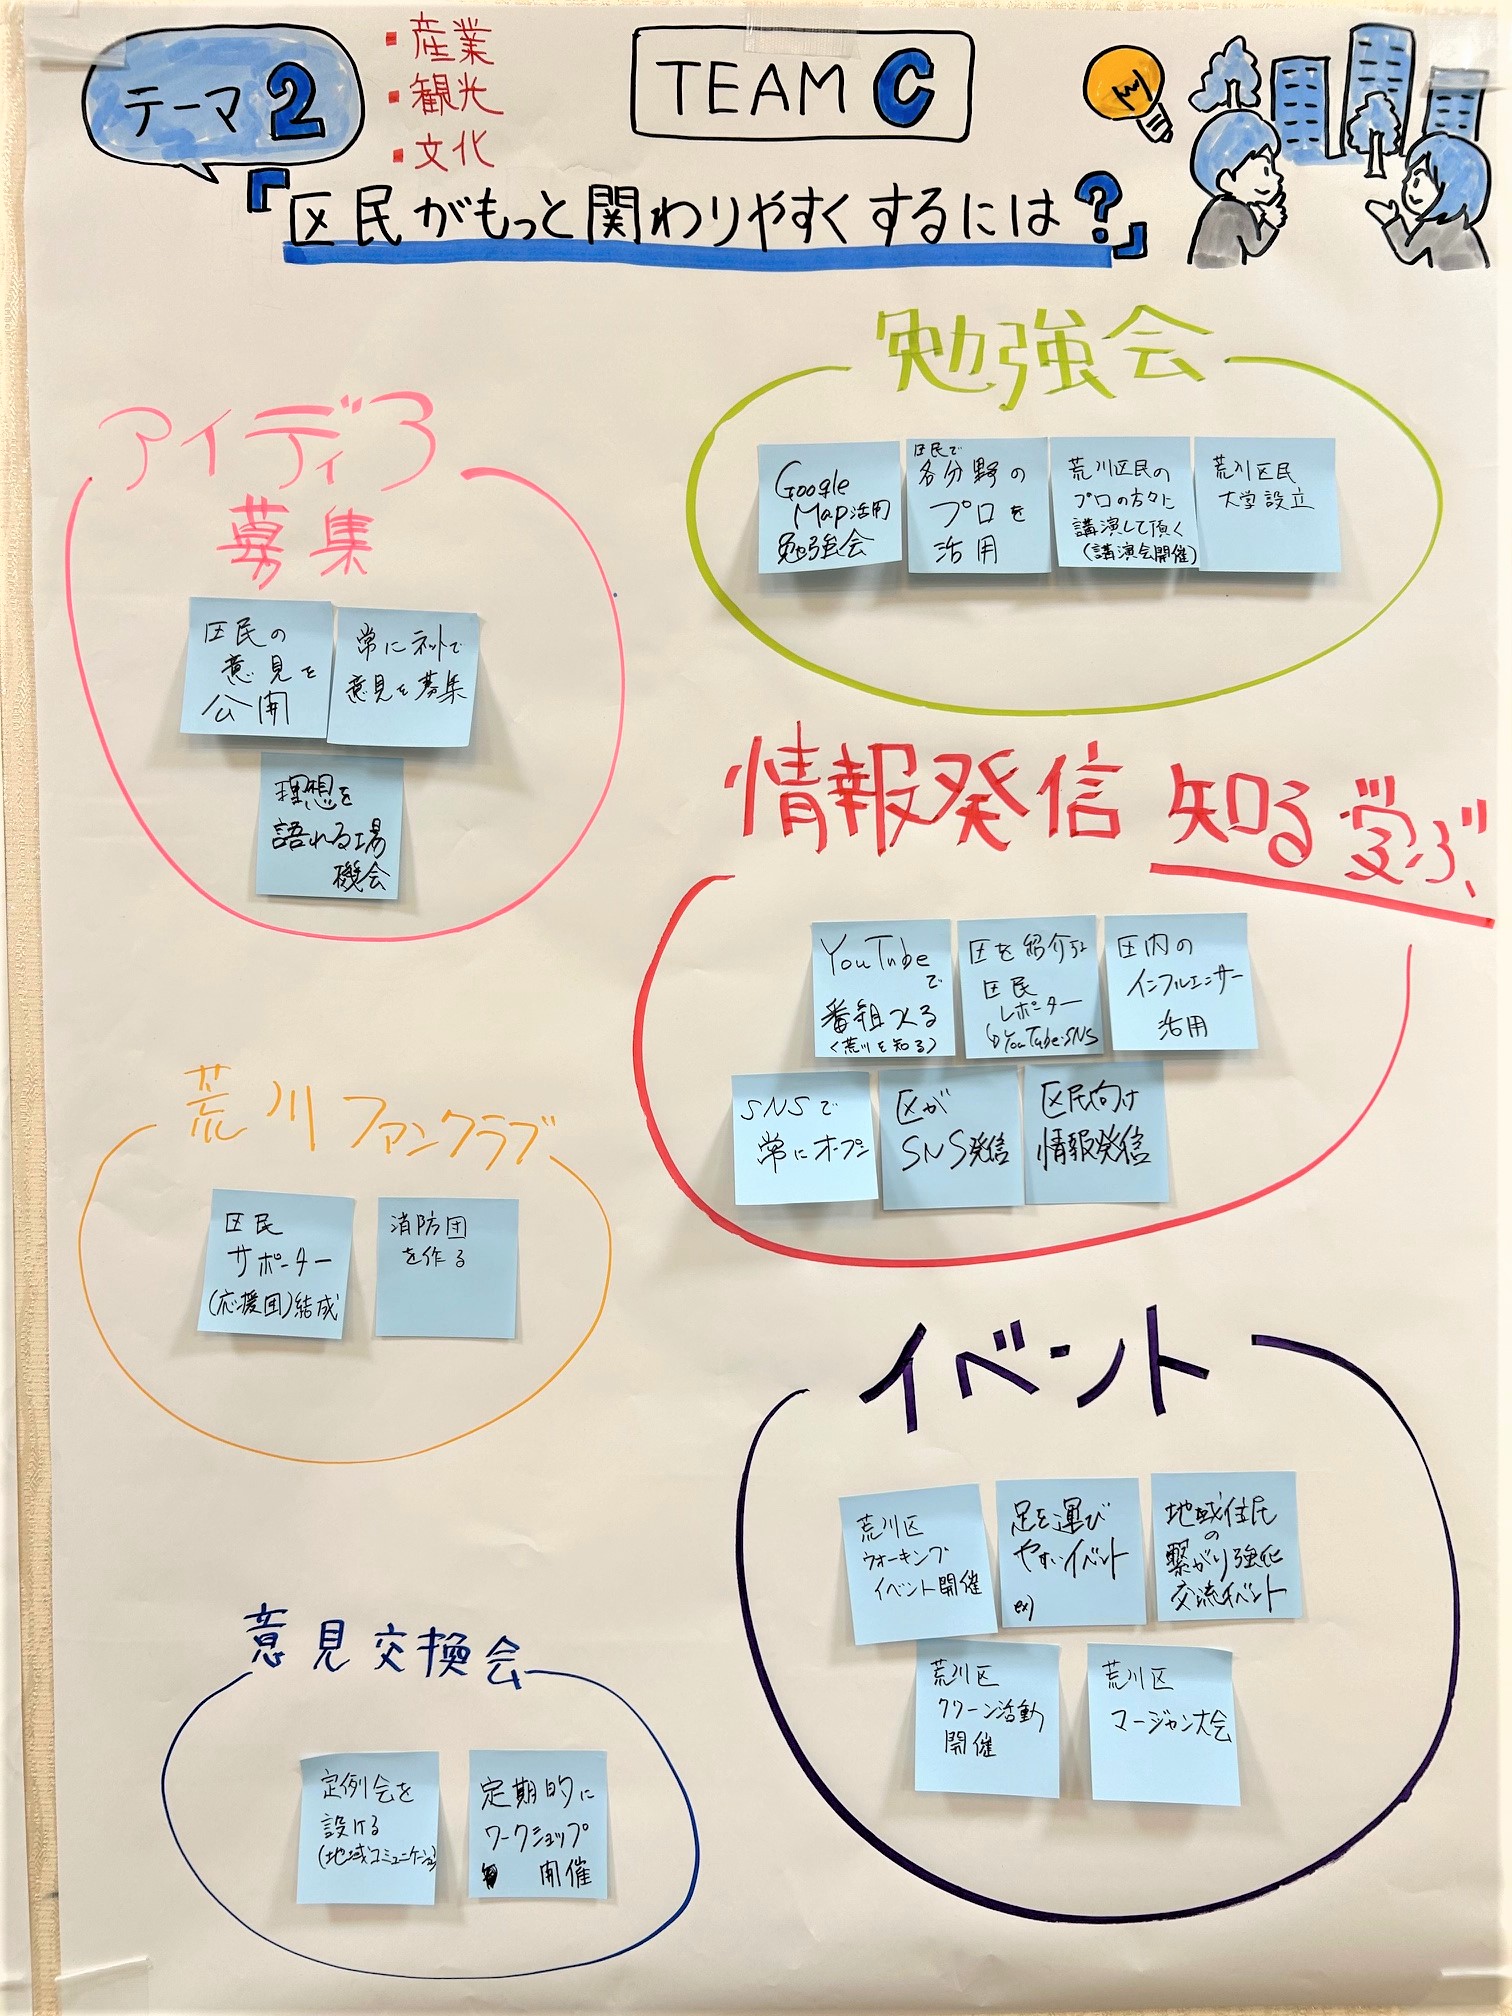 テーマ2
▪産業
▪観光
▪文化
TEAM C
『区民がもっと関わりやすくするには?』
アイディア
募集
区民の
意見を
公開
常にネットで
意見を募集
理想を
語れる場
機会
勉強会
Google
Map活用
勉強会
区民で
各分野の
プロを
活用
荒川区民の
プロの方々に
講演して頂く
(講演会開催)
荒川区民
大学設立
情報発信 知る 学ぶ
YouTube
で
番組つくる
(荒川を知る)
区を紹介する
区民
レポーター
YouTube・SNS
区内の
インフルエンサー
活用
SNSで
常にオープン
区が
SNS発信
区民向け
情報発信
荒川ファンクラブ
区民
サポーター
(応援団)結成
消防団
を作る
イベント
荒川区
ウォーキング
イベント開催
足を運び
やすいイベント
ex)
地域住民
の
繋がり強化
交流イベント
荒川区
クリーン活動
開催
荒川区
マージャン大会
意見交換会
定例会を
設ける
(地域コミュニケーション)
定期的に
ワークショップ
開催